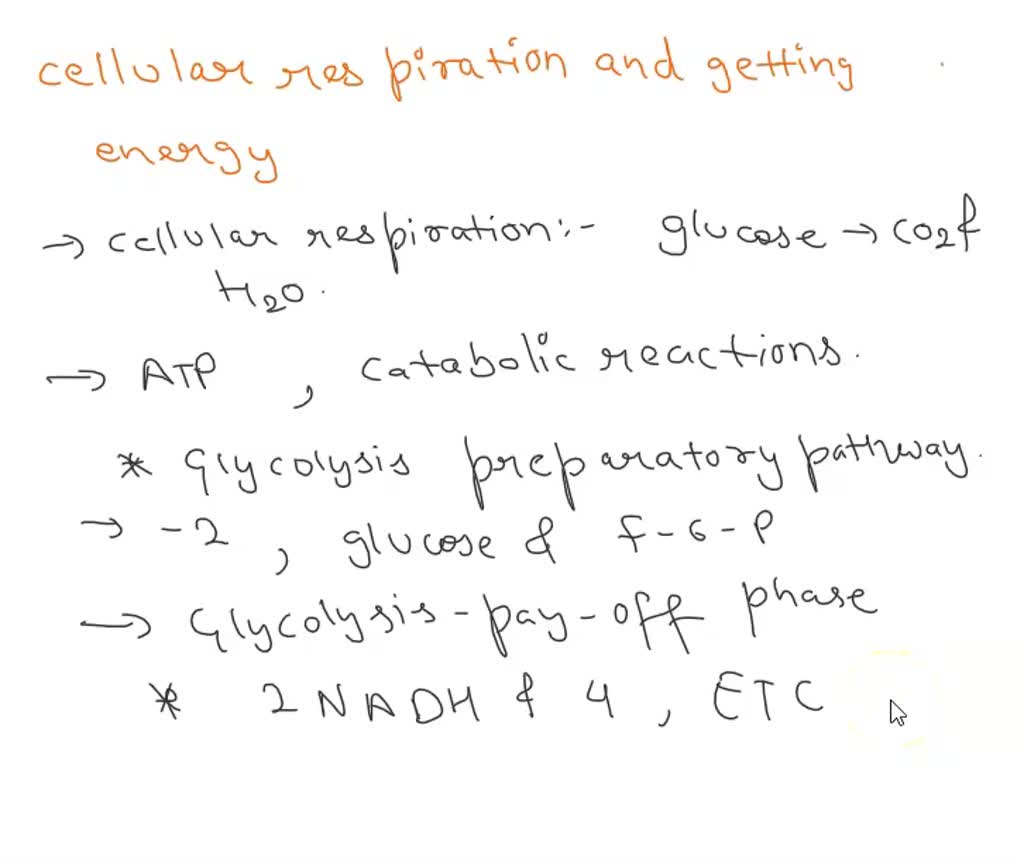 cellular respiration and getting
energy
→ cellular respiration:- glucose → CO2 &
H2O.
→ ATP , catabolic reactions.
* Glycolysis preparatory pathway.
→ -2 , glucose & f-6-P
→ Glycolysis-pay-off phase
* 2 NADH & 4 , ETC